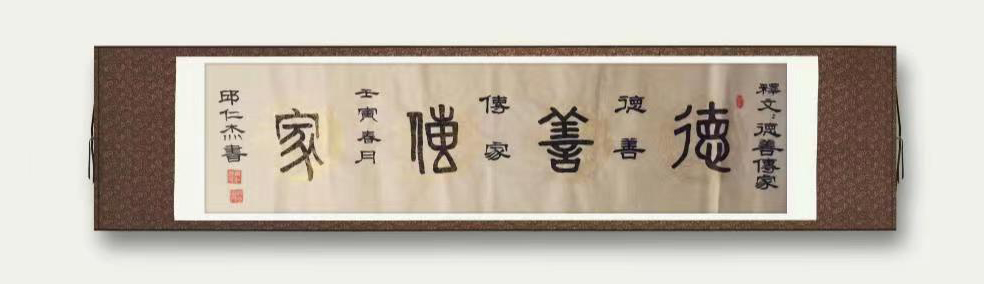 釋文：德善傳家
德
德善
善
傳家
傳
壬寅春月
家
邱仁杰書